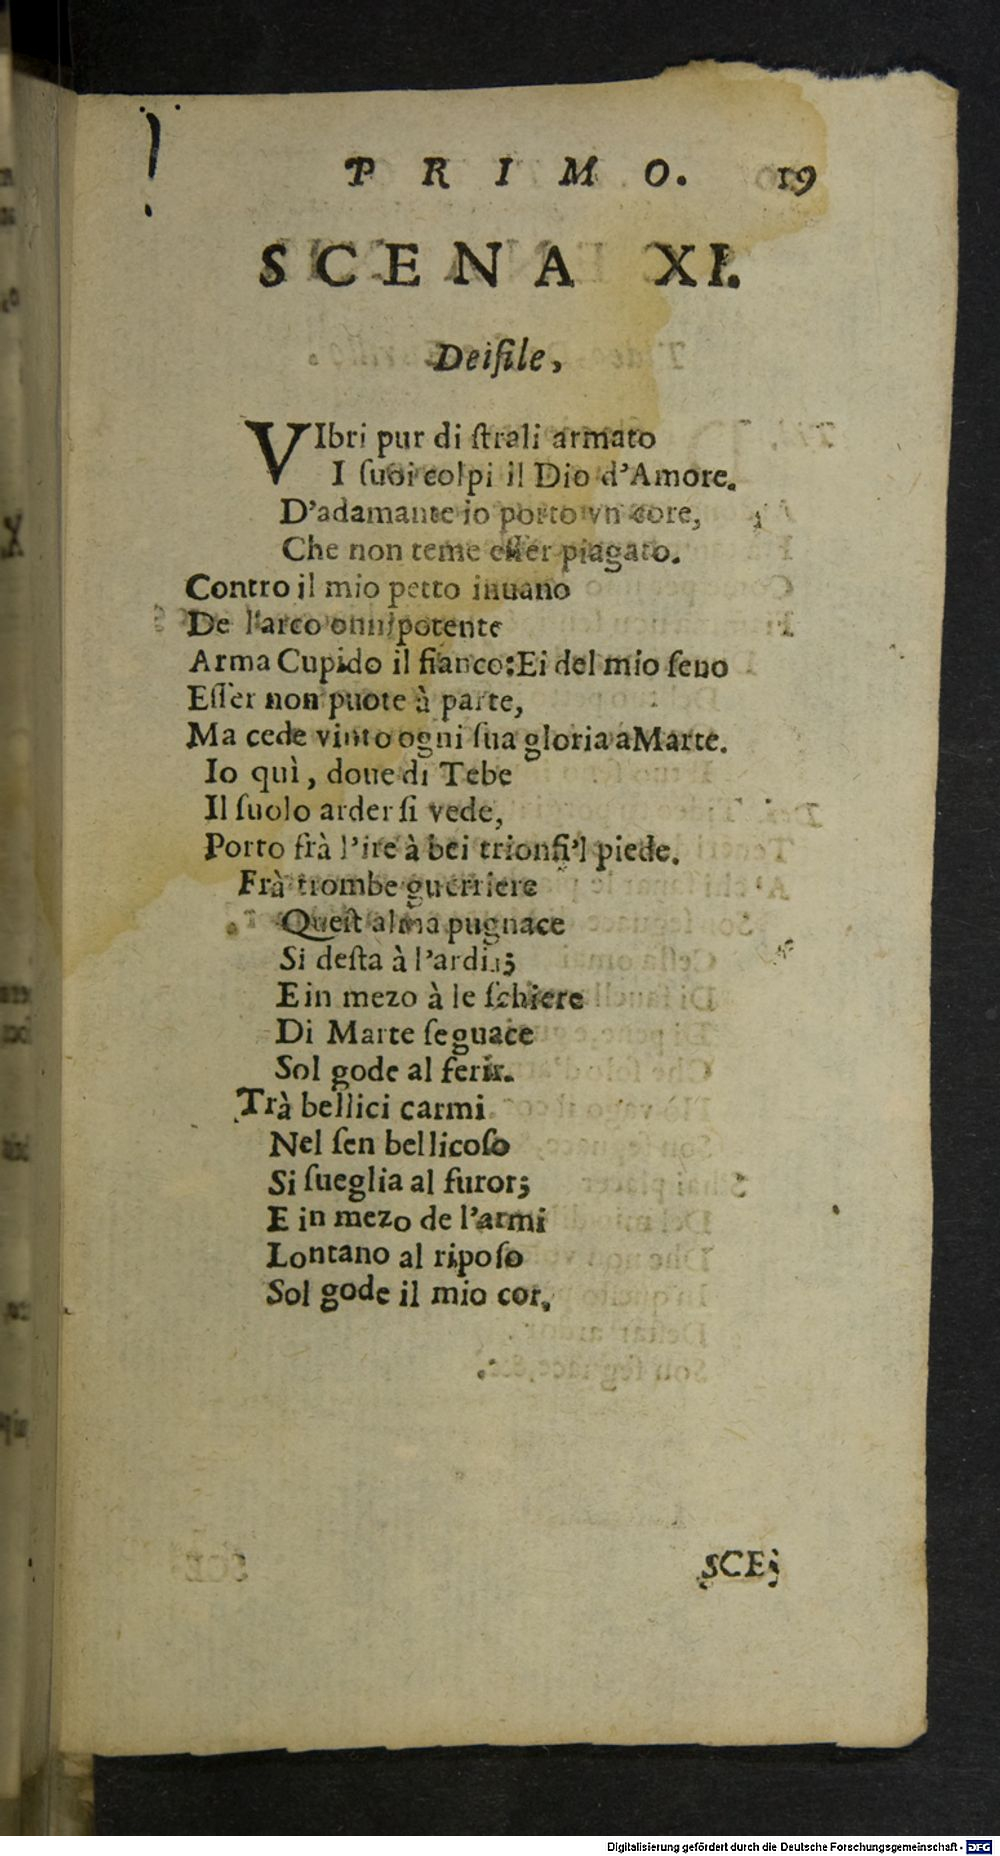 PRIMO. 19
SCENA XI.
Deiſile,
VIbri pur di ſtrali armato
I ſuoi colpi il Dio d'Amore.
D'adamante io porto vn core,
Che non teme eſſer piagato.
Contro il mio petto inuano
De l'arco onnipotente
Arma Cupido il fianco: Ei del mio ſeno
Eſſer non puote à parte,
Ma cede vinto ogni ſua gloria a Marte.
Io quì, doue di Tebe
Il ſuolo arder ſi vede,
Porto frà l'ire à bei trionfi'l piede.
Frà trombe guerriere
Queſt alma pugnace
Si deſta à l'ardir;
E in mezo à le ſchiere
Di Marte ſeguace
Sol gode al ferir.
Trà bellici carmi
Nel ſen bellicoſo
Si ſueglia al furor;
E in mezo de l'armi
Lontano al ripoſo
Sol gode il mio cor.
SCE
Digitalisierung gefördert durch die Deutsche Forschungsgemeinschaft - DFG